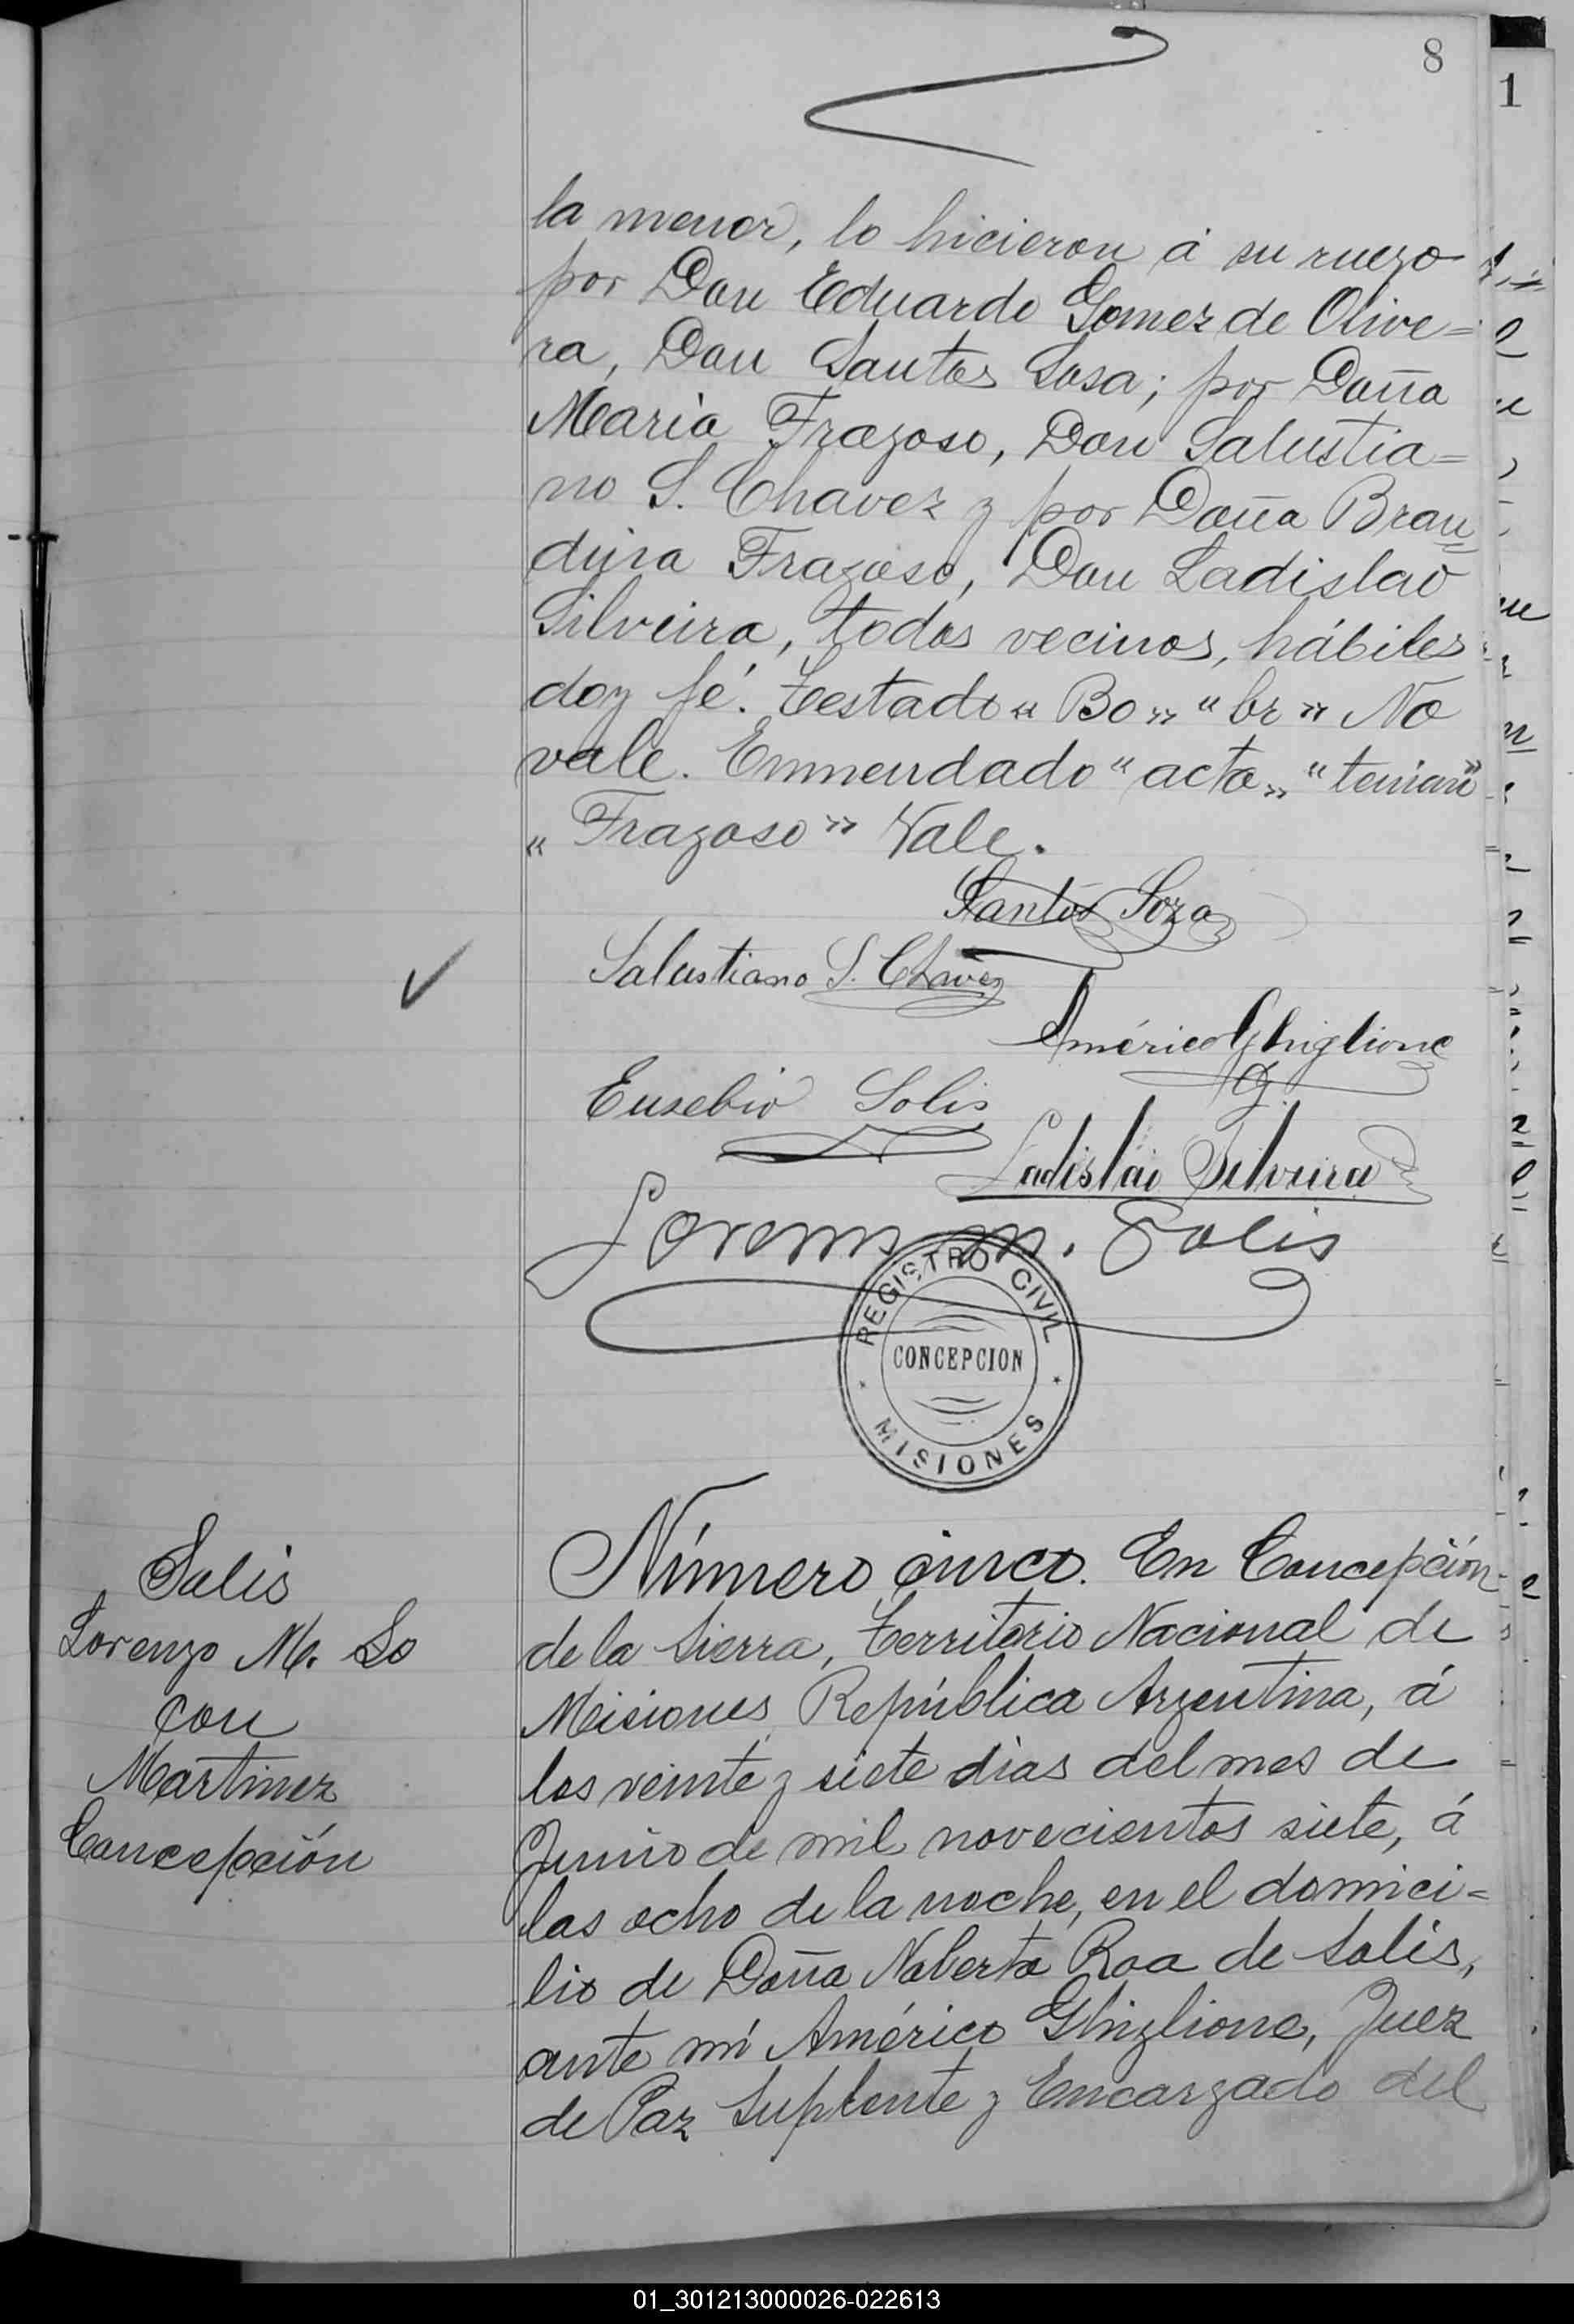 8
1
la menor, lo hicieron á su ruego
por Don Eduardo Gomez de Olive=
ra, Don Santos Sosa; por Doña
Maria Fragoso, Don Salustia=
no S. Chavez y por Doña Bran
dina Fragoso, Don Ladislao
Silveira, todos vecinos, hábiles
doy fé. Testado « Bo » " br " No
vale. Enmendado " acta " " tenian "
« Fragoso » Vale.
Santos Soza
Salustiano S. Chavez
Américo Ghiglione
Eusebio Solis
Ladislao Silveira
Lorenzo M. Solis
REGISTRO CIVIL
CONCEPCION
MISIONES
Solis
Lorenzo M. So
con
Martinez
Concepción
Número cinco. En Concepción
de la Sierra, Territorio Nacional de
Misiones República Argentina, á
los veinte y siete dias del mes de
Junio de mil novecientos siete, á
las ocho de la noche, en el domici=
lio de Doña Noberta Roa de Solis,
ante mí Américo Ghiglione, Juez
de Paz Suplente y Encargado del
01_301213000026-022613